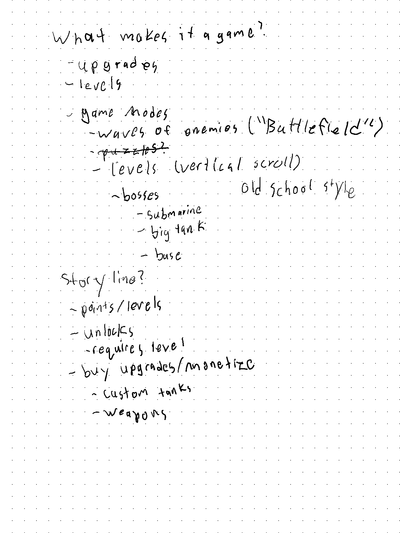 What makes it a game?
- upgrades
- levels
- game modes
- waves of enemies ("Battlefield")
- puzzles?
- levels (vertical scroll)
old school style
- bosses
- submarine
- big tank
- base
Story line?
- points/levels
- unlocks
- requires level
- buy upgrades/monetize
- custom tanks
- weapons